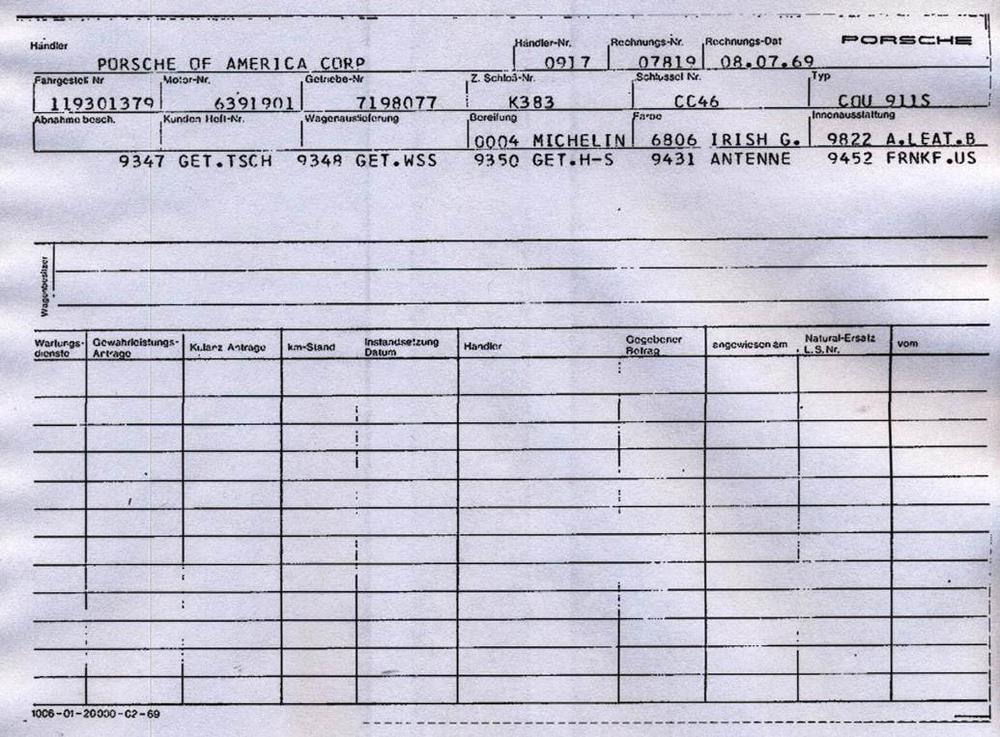 Händler Händler-Nr. Rechnungs-Nr. Rechnungs-Dat PORSCHE
PORSCHE OF AMERICA CORP 0917 07819 08.07.69
Fahrgestell Nr Motor-Nr. Getriebe-Nr Z. Schloß-Nr. Schlüssel Nr. Typ
119301379 6391901 7198077 K383 CC46 COU 911S
Abnahme besch. Kunden Heft-Nr. Wagenauslieferung Bereifung Farbe Innenausstattung
0004 MICHELIN 6806 IRISH G. 9822 A.LEAT.B
9347 GET.TSCH 9348 GET.WSS 9350 GET.H-S 9431 ANTENNE 9452 FRNKF.US
Wagenbesitzer
Wartungs- Gewährleistungs- Kulanz Anträge km-Stand Instandsetzung Händler Gegebener angewiesen am Natural-Ersatz vom
dienste Anträge Datum Betrag L.S.Nr.
1006-01-20000-02-69